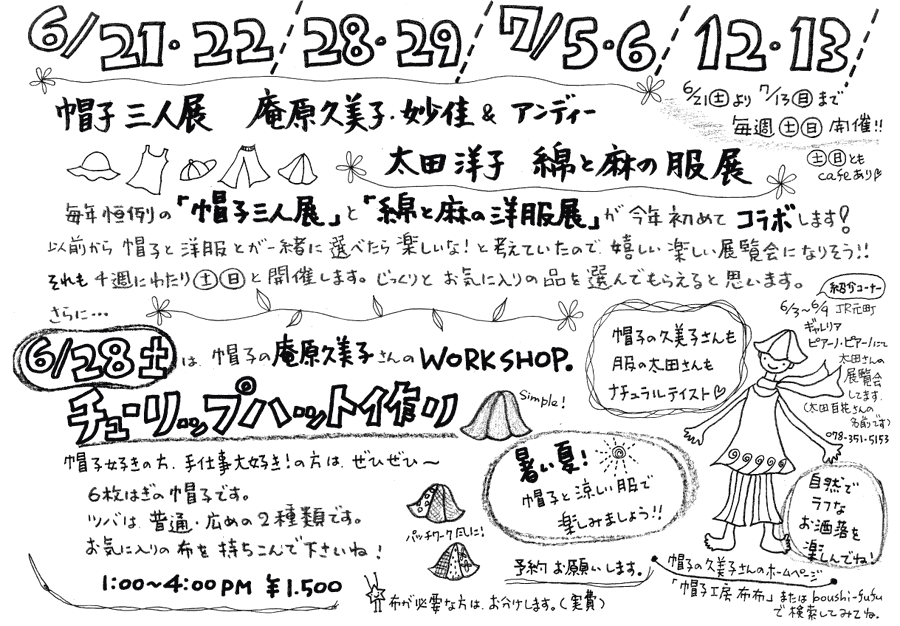 6/21・22/28・29/7/5・6/12・13/
6/21㊏より7/13㊐まで
毎週㊏㊐開催!!
㊏㊐とも
cafeあり
帽子三人展 庵原久美子・妙佳&アンディー
太田洋子 綿と麻の服展
毎年恒例の「帽子三人展」と「綿と麻の洋服展」が今年初めてコラボします!
以前から帽子と洋服とが一緒に選べたら楽しいな!と考えていたので、嬉しい楽しい展覧会になりそう!!
それも4週にわたり㊏㊐と開催します。じっくりとお気に入りの品を選んでもらえると思います。
さらに…
6/28土は、帽子の庵原久美子さんのWORKSHOP.
チューリップハット作り
Simple!
帽子好きの方、手仕事大好き!の方は、ぜひぜひ〜
6枚はぎの帽子です。
ツバは、普通・広めの2種類です。
お気に入りの布を持ちこんで下さいね!
1:00〜4:00PM ¥1.500
パッチワーク風に!
布が必要な方は、お分けします。(実費)
帽子の久美子さんも
服の太田さんも
ナチュラルテイスト♡
暑い夏!
帽子と涼しい服で
楽しみましょう!!
予約お願いします。
紹介コーナー
6/3〜6/4 JR元町
ギャルリア
ピアーノ・ピアーノにて
太田さんの
展覧会
してます。
(太田百花さんの
名前です)
078-351-5153
自然で
ラフな
お洒落を
楽しんでね!
帽子の久美子さんのホームページ
「帽子工房 布布」または boushi-fufu
で検索してみてね。